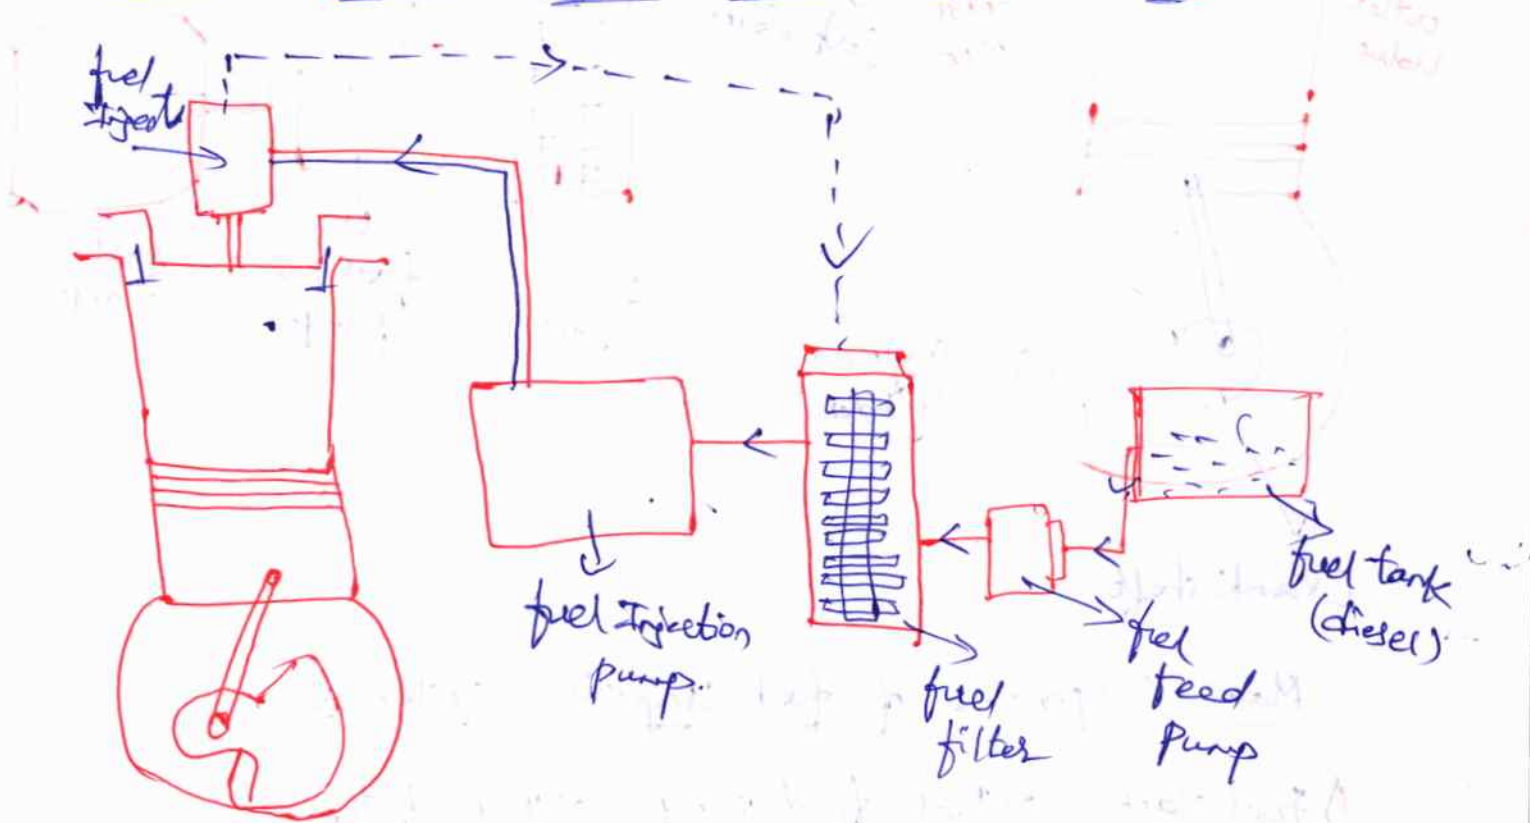 fuel
Inject
fuel Injection
pump.
fuel
filter
fuel
feed
Pump
fuel tank
(diesel)